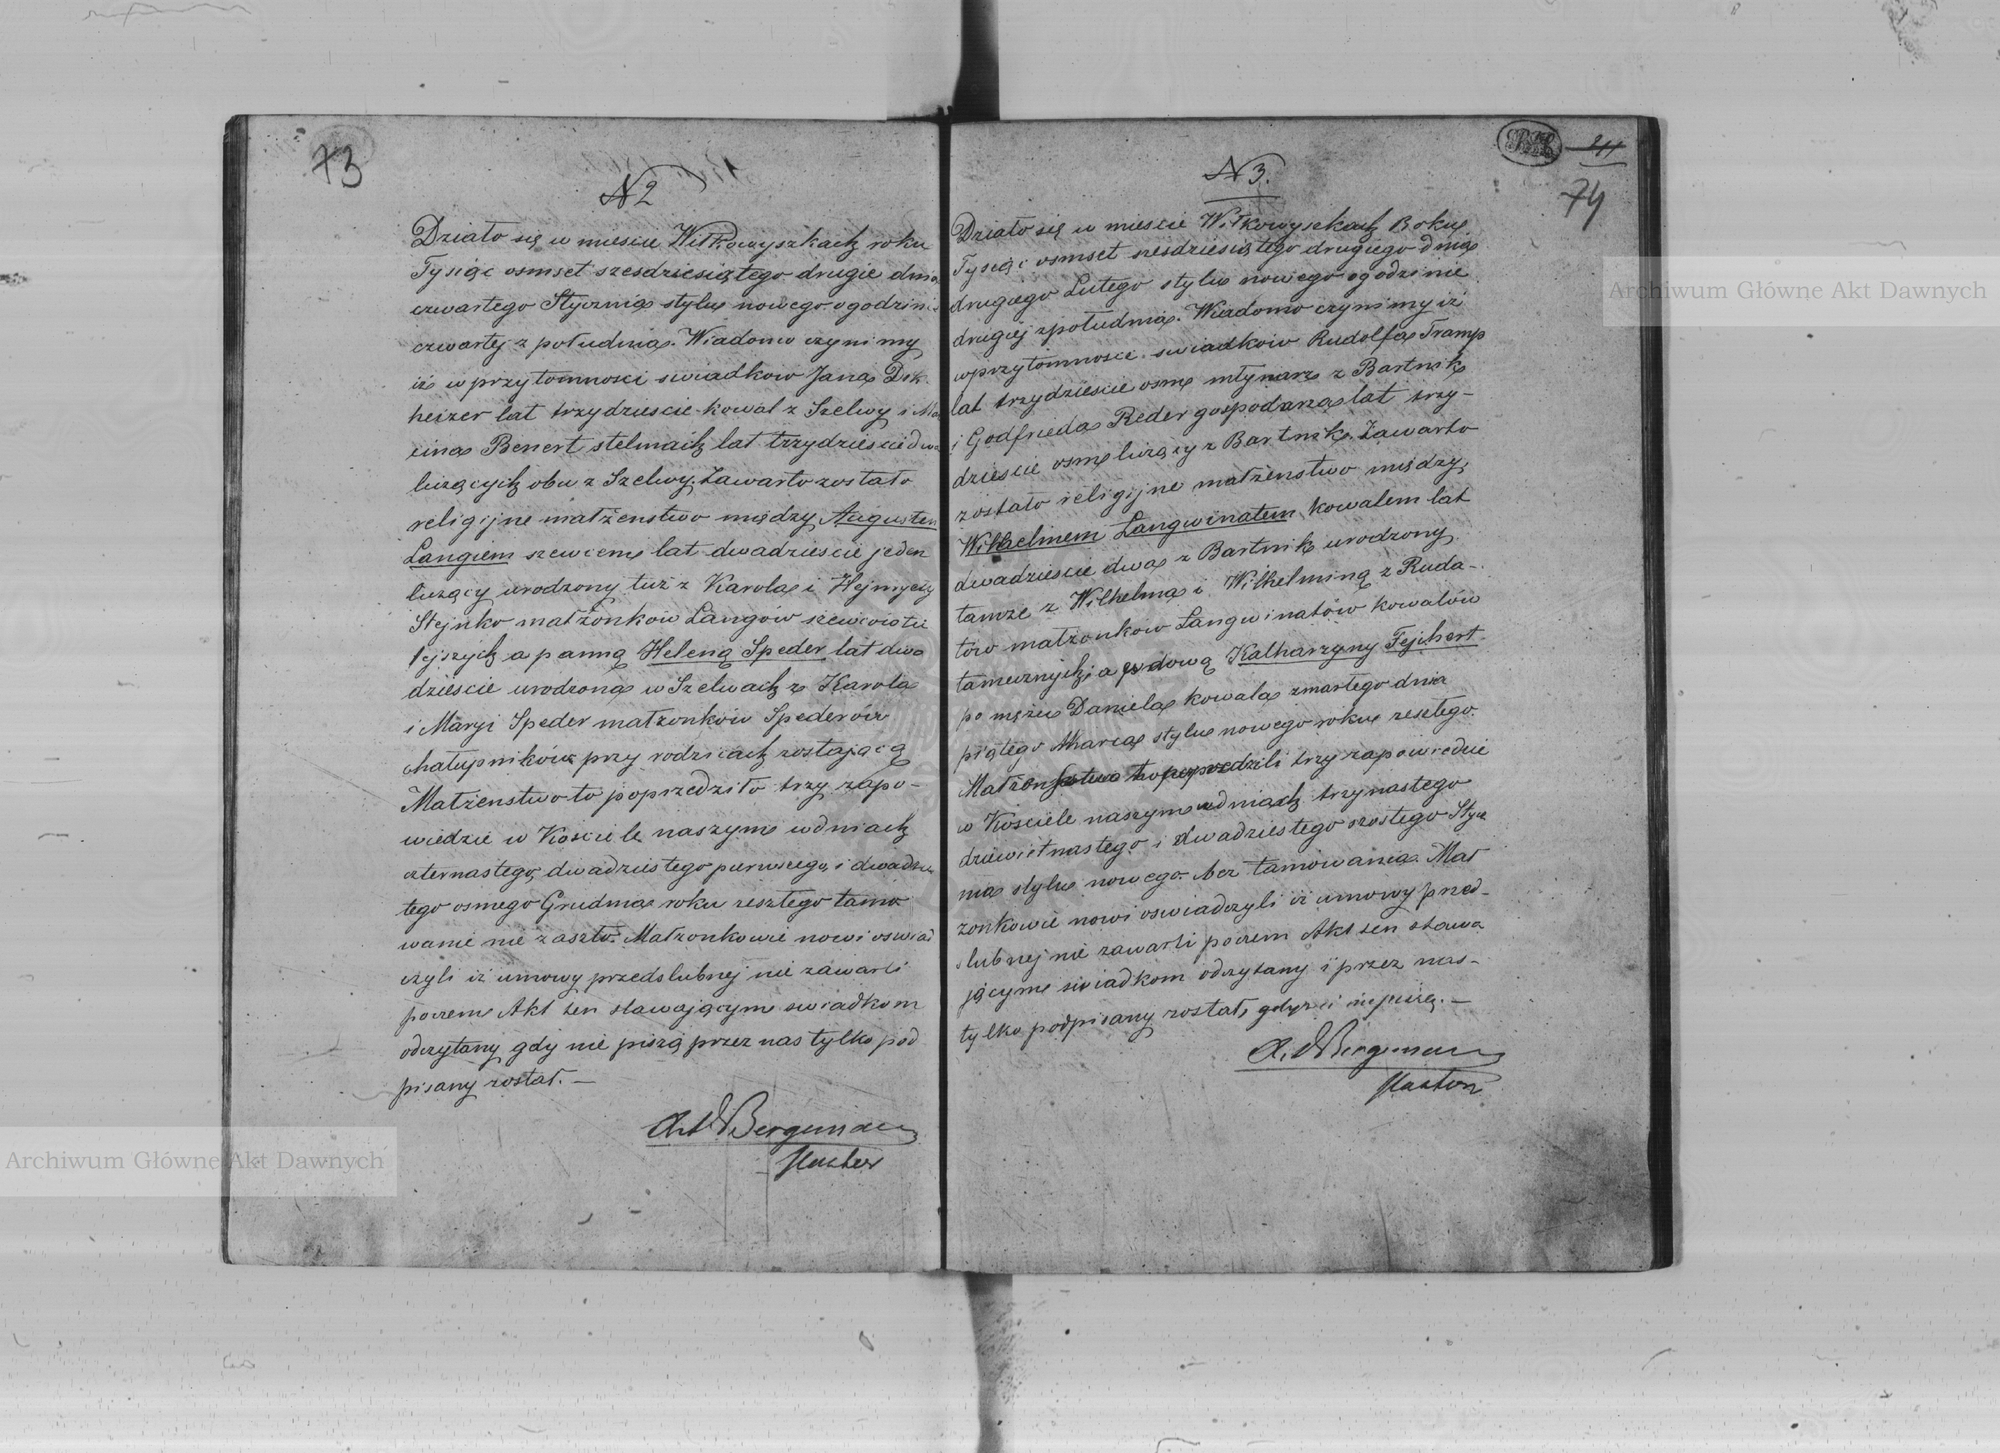 73
N 2
Działo się w mieście Wiłkowyszkach roku
Tysiąc osmset szesdziesiątego drugie dnia
czwartego Stycznia stylu nowego o godzini
czwartej z południa. Wiadomo czynimy
iż w przytomnosci swiadkow Jana Dok
heizer lat trzydziescie kowal z Szelwy i Ma
cina Benert stelmach lat trzydziescie dwa
liczących obu z Szelwy, Zawarto zostało
religijne małżenstwo między Augustem
Langiem szewcem lat dwadziescie jeden
liczący urodzony tuż z Karola i
Stejnko małżonków Langów szewców tu
tejszych a panną Heleną Speder lat dwa
dziescie urodzona w Szelwach z Karola
i Maryi Speder małżonków Spederów
chałupników przy rodzicach zostającą
Małżenstwo to poprzedziło trzy zapo-
wiedzie w Kościele naszym w dniach
czternastego, dwadziestego pierwszego, i dwadzies
tego osmego Grudnia roku zeszłego tamo
wanie nie zaszło. Małzonkowie nowi oswiad
czyli iż umowy przedslubnej nie zawarli
poczem Akt ten stawającym swiadkom
odczytany gdy nie piszą przez nas tylko pod
pisany został. —
Bergmann
Pastor
74
N 3.
Działo się w mieście Wiłkowyszkach Roku
Tysiąc osmset szesdziesiątego drugiego dnia
drugiego Lutego stylu nowego o godzinie
drugiej z południa. Wiadomo czynimy iż
w przytomnosci swiadków Rudolfa Tramp
lat trzydziescie osm młynarz z Bartnik
i Godfrieda Reder gospodarza lat trzy-
dziescie osm liczący z Bartnik. Zawarto
zostało religijne małżenstwo między
Wilhelmem Langwinatem kowalem lat
dwadziescie dwa z Bartnik urodzony
tamże z Wilhelma i Wilhelminą z Ruda-
tów małzonkow Langwinatów kowalów
tamecznych, a wdową Katharzyny Fejhert
po mężu Daniela kowala zmarłego dnia
piątego Marca stylu nowego roku zeszłego.
Małżenstwo to poprzedzili trzy zapowiedzie
w Kościele naszym w dniach trzynastego
dziewiętnastego i dwadziestego szostego Stycz
nia stylu nowego bez tamowania. Mał
zonkowie nowi oswiadczyli iż umowy przed-
slubnej nie zawarli poczem Akt ten stawa
jącym swiadkom odczytany i przez nas-
tylko podpisany został, gdyż ci nie piszą. —
Bergmann
Pastor
Archiwum Główne Akt Dawnych
Archiwum Główne Akt Dawnych